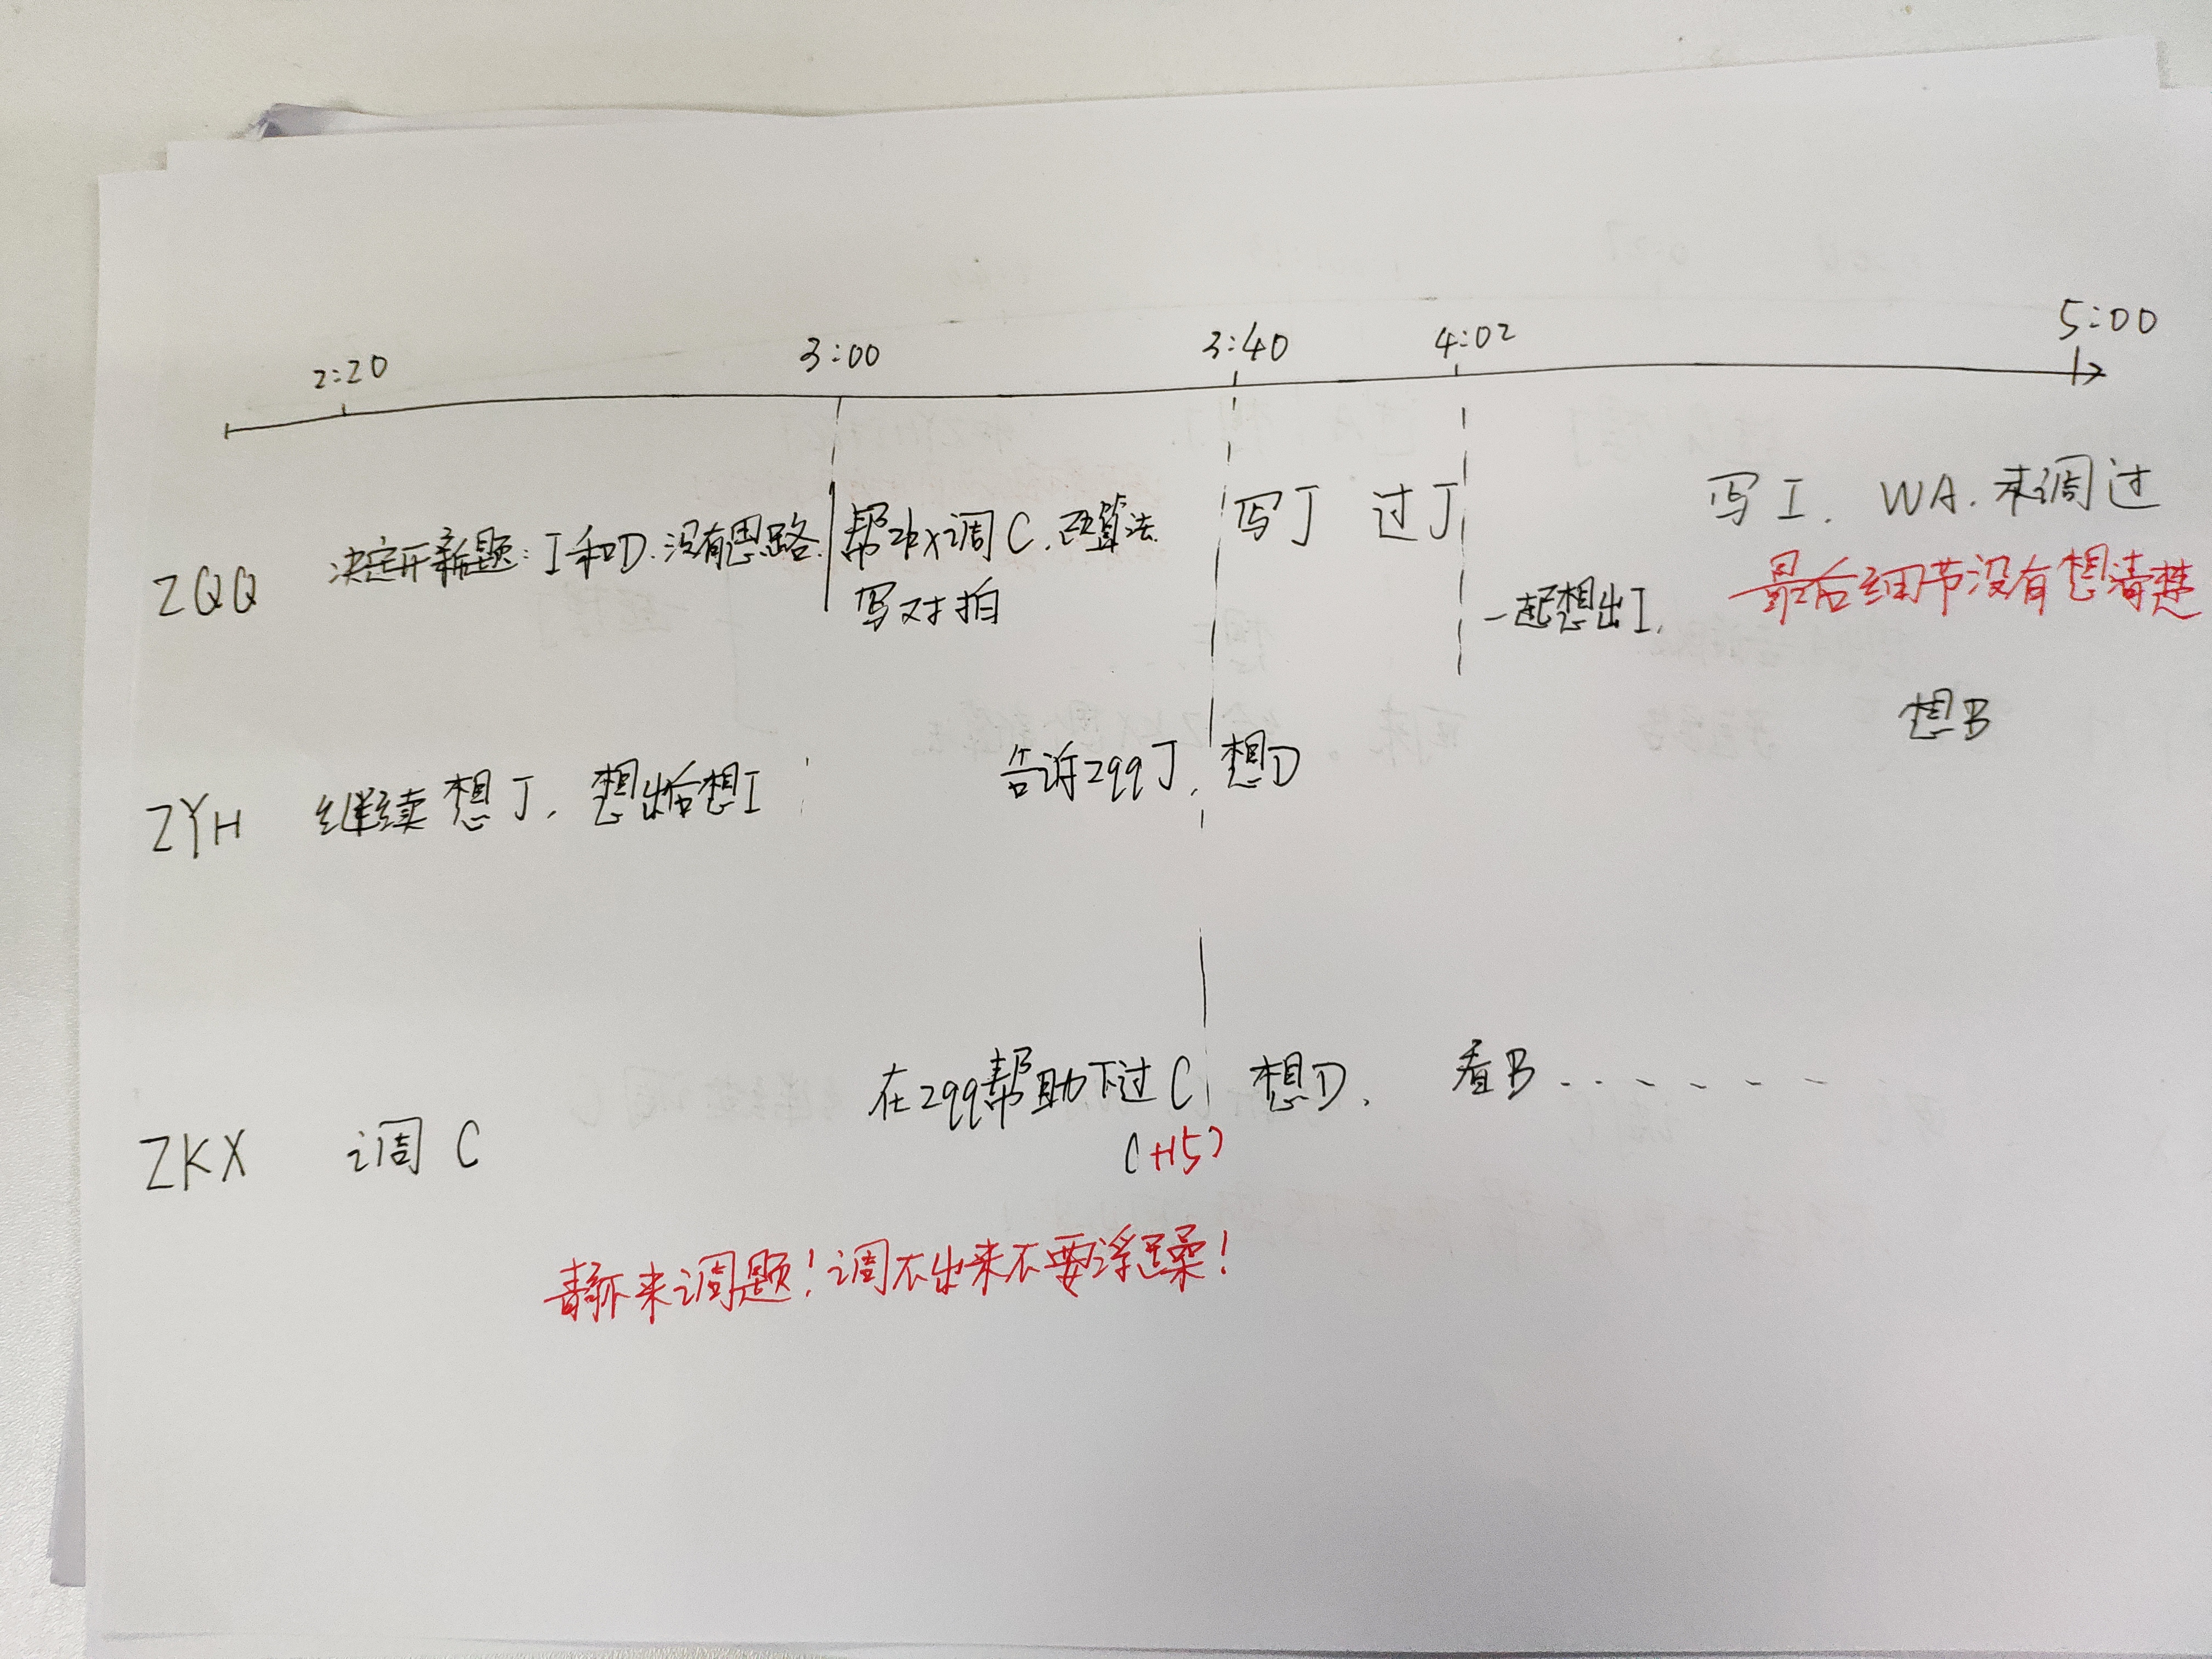 2:20 3:00 3:40 4:02 5:00
ZQQ 决定开新题：I和D.没有思路. 帮zkx调C. 算法. 写J 过J 写I. WA. 未调过
写对拍 一起想出I. 最后细节没有想清楚
想B
ZYH 继续想J, 想出后想I 告诉zqq J, 想D
ZKX 调C 在zqq帮助下过C 想D, 看B......
(+15)
静下来调题！调不出来不要浮躁！